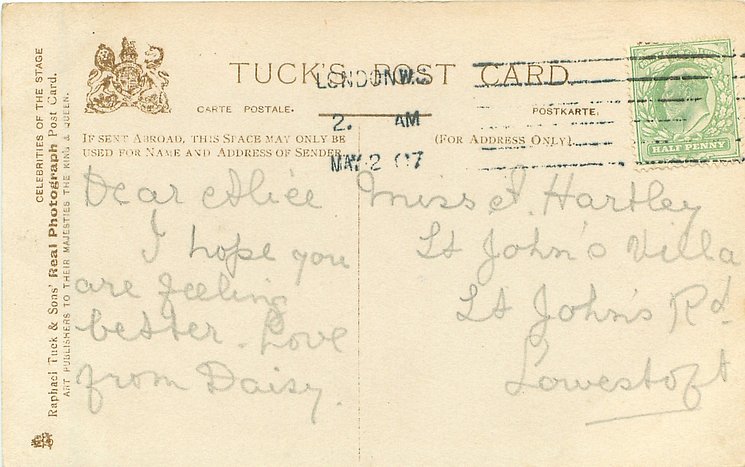 CELEBRITIES OF THE STAGE
Raphael Tuck & Sons' Real Photograph Post Card.
ART PUBLISHERS TO THEIR MAJESTIES THE KING & QUEEN.
TUCK'S POST CARD
CARTE POSTALE.
POSTKARTE.
IF SENT ABROAD, THIS SPACE MAY ONLY BE
USED FOR NAME AND ADDRESS OF SENDER
(FOR ADDRESS ONLY)
LONDON W.C
2. AM
MAY 2 07
HALF PENNY
Dear Alice
I hope you
are feeling
better. Love
from Daisy.
Miss A. Hartley
St John's Villa
St John's Rd
Lowestoft